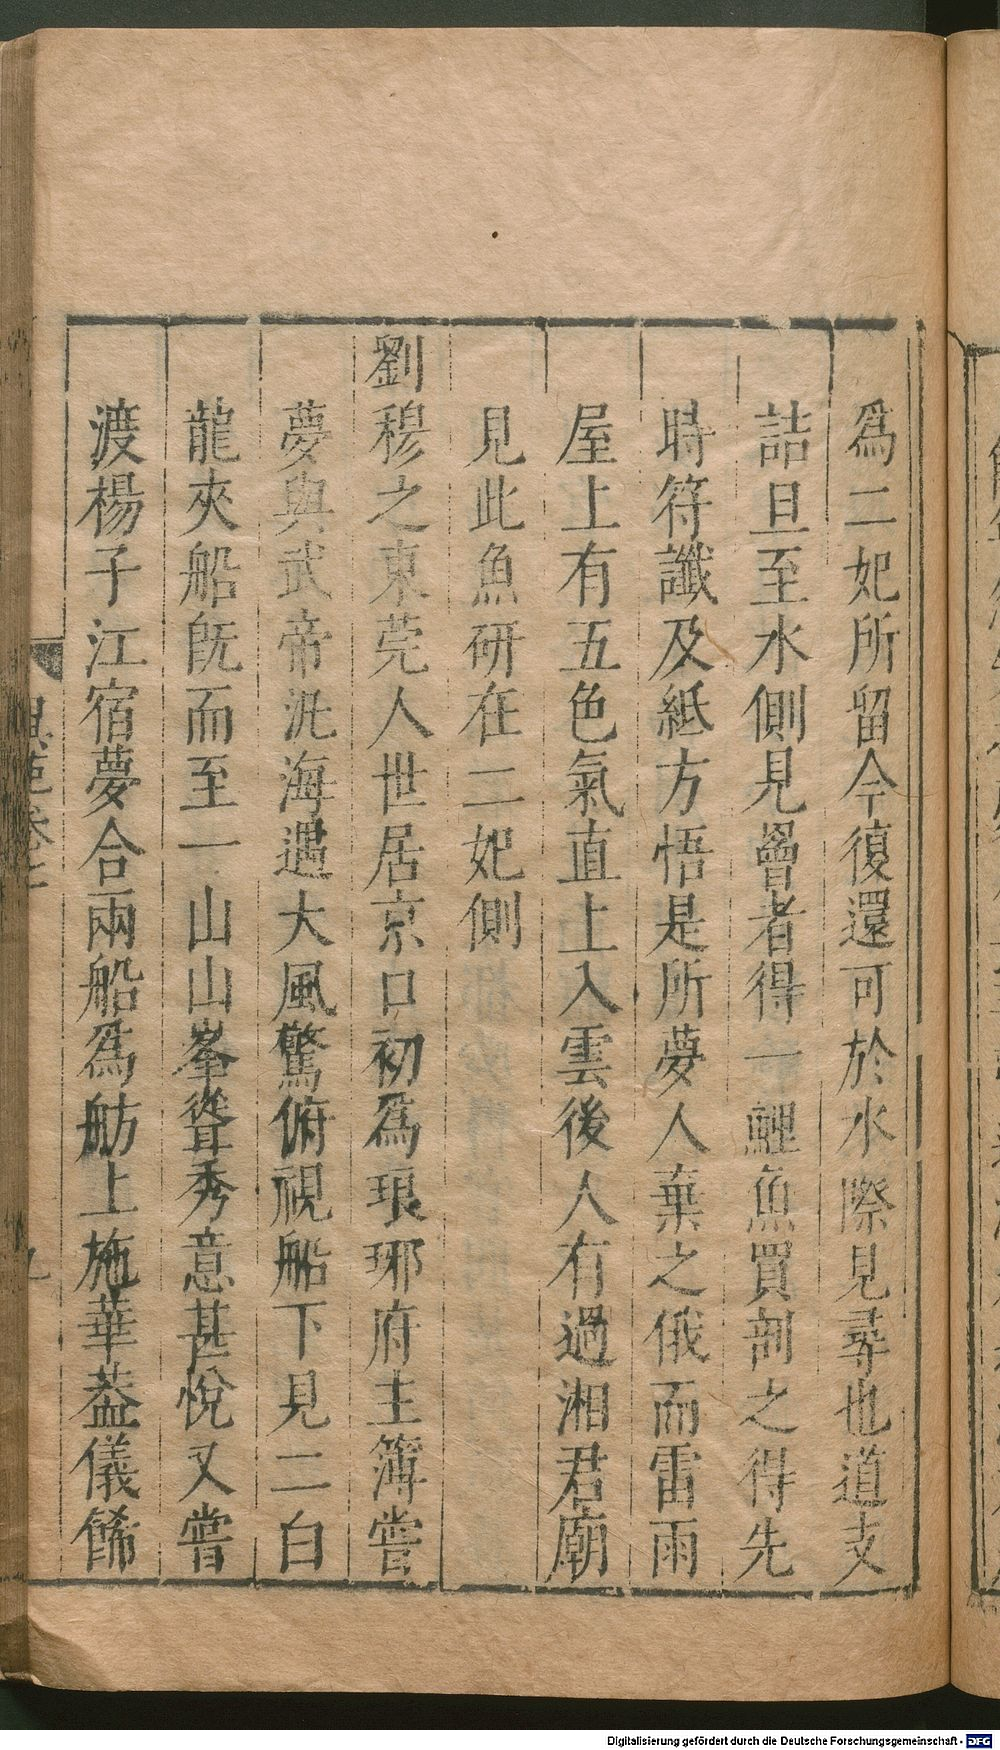 爲二妃所留今復還可於水際見尋也道支
詰旦至水側見罾者得一鯉魚買剖之得先
時符讖及紙方悟是所夢人棄之俄而雷雨
屋上有五色氣直上入雲後人有過湘君廟
見此魚研在二妃側
劉穆之東莞人世居京口初爲琅琊府主簿嘗
夢與武帝汎海遇大風驚俯視船下見二白
龍夾船旣而至一山山峯聳秀意甚悅又嘗
渡楊子江宿夢合兩船爲舫上施華葢儀餙
異苑卷七
九
Digitalisierung gefördert durch die Deutsche Forschungsgemeinschaft - DFG